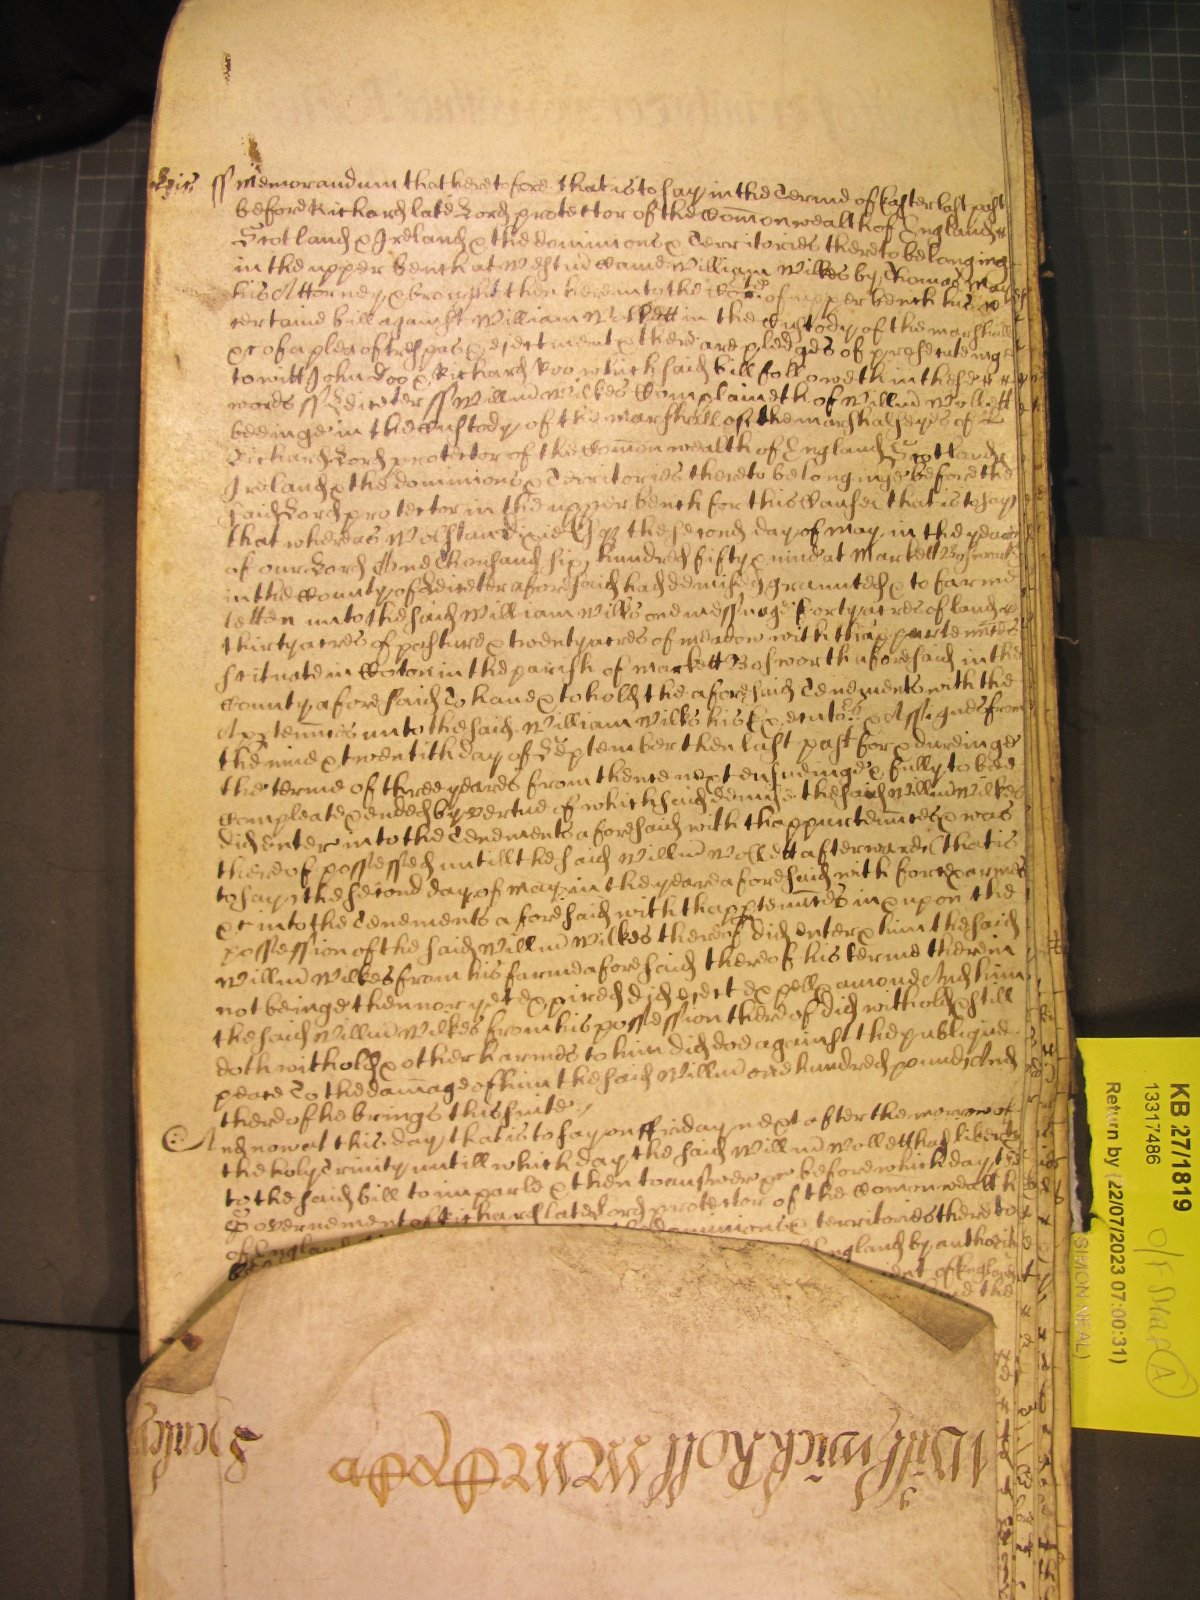 Leic ss Memorandum that heretofore that is to say in the Terme of Easter last past
before Richard late Lord protector of the Comonwealth of England
Scotland & Ireland & the dominions & Territories thereto belonging
in the upper bench at Westm came William Wilkes by Thomas May
his Attorney & brought then here into the Court of upper bench his
certaine bill against William Wollett in the Custody of the marshall
&c of a plea of trespas & ejectment & there are pledges of prosecuteinge
to witt John Doo & Richard Roo which said bill followeth in these
words ss Leicester ss Willm Wilkes Complaineth of Willm Wollett
beeinge in the Custody of the marshall of the marshalseyes of
Richard Lord protector of the Comonwealth of England Scotland
Ireland & the dominions & Territories thereto belonginge before the
said Lord protector in the upper bench for this Cause that is to say
that whereas Wolstan the second day of May in the yeare
of our Lord One thousand six hundred fifty & nine at Markett Bosworth
in the County of Leicester aforesaid had demised graunted & to farme
letten unto the said William Wilks one messuage forty acres of land &
thirty acres of pasture & twenty acres of meadow with thappurtennces
scituate in Coton in the parish of Markett Bosworth aforesaid in the
County aforesaid To have & to hold the aforesaid Tenements with the
Apptennces unto the said William Wilks his & Assignes from
the nine & twentith day of September then last past for & dureinge
the terme of three yeares from thence next ensueinge & fully to bee
Compleate & ended by vertue of which said demise the said Willm Wilkes
did enter into the Tenements aforesaid with thappurtennces & was
thereof possessed untill the said Willm Wollett afterwards (that is
to say) the second day of May in the yeare aforesaid with force & armes
&c into the Tenements aforesaid with thapptennces in & upon the
possession of the said Willm Wilkes thereof did enter & him the said
Willm Wilkes from his farme aforesaid thereof his terme therein
not beinge then nor yet expired did eject expell & amove And him
the said Willm Wilkes from his possession thereof did withold & still
doth withold & other harmes to him did doe against the publique
peace To the damage of him the said Willm one hundred pounds And
thereof he brings this suite
And now at this day that is to say on ffriday next after the morrow of
the holy Trinity untill which day the said Willm Wollett had liberty
to the said bill to imparle & then to answere &c before which day the
Government of Richard late Lord protector of the Comonwealth
of England dominions & territories thereto
England by authority
of England
the
KB 27/1819
13317486
Return by (22/07/2023 07:00:31)
SIMON NEAL)
O/F
A